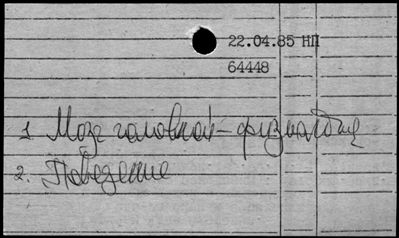 22.04.85 НП
64448
1 Мозг головной - физиология
2. Поведение